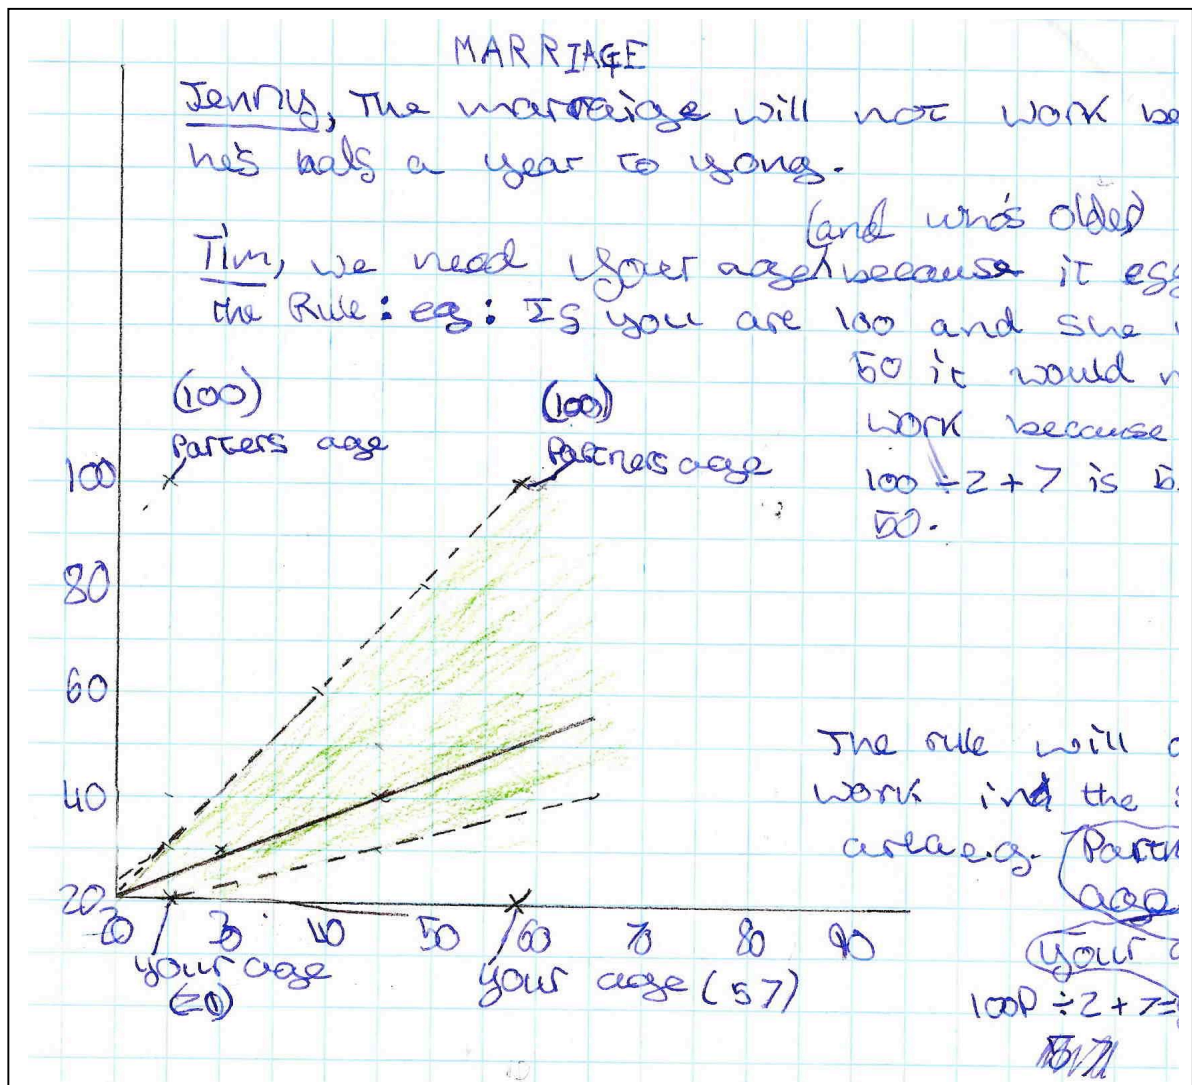 MARRIAGE
Jenny, The marraige will not work be
he's half a year to yong.
(and who's older)
Tim, we need your age because it eff
the Rule: eg: If you are 100 and she
50 it would n
work because
100 ÷ 2 + 7 is 5
50.
(100)
Parters age
(100)
Partners age
100
80
60
40
20
20 30 40 50 60 70 80 90
your age
your age (57)
The rule will o
work in the s
area e.g. Partn
age
your a
100P ÷ 2 + 7 =